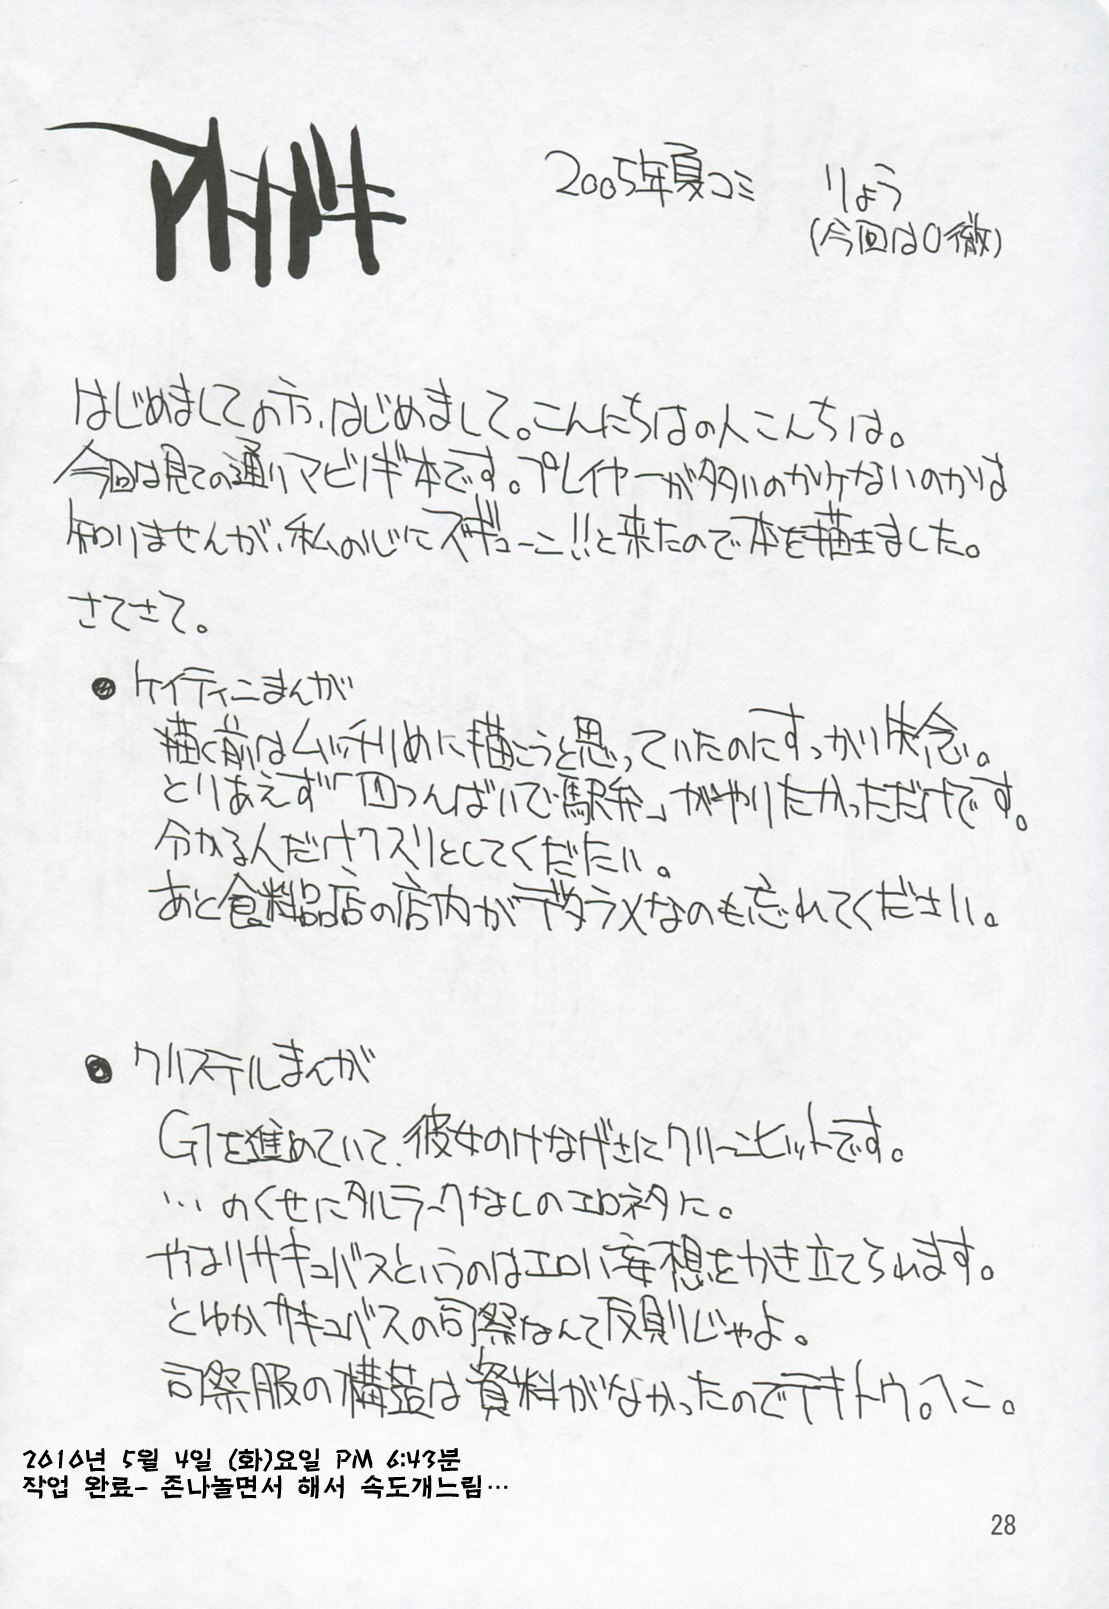 アトガキ
2005年夏コミ りょう
(今回は0徹)
はじめましての方、はじめまして。こんにちはの人こんちは。
今回は見ての通りマビノギ本です。プレイヤーが多いのか少ないのかは
知りませんが、私の心にズギューン!!と来たので本を描きました。
さてさて。
● ケイティンまんが
描く前はムッチリめに描こうと思っていたのにすっかり失念。
とりあえず「四つんばいで駅弁」がやりたかっただけです。
分かる人だけクスリとしてくだたい。
あと食料品店の店内がデタラメなのも忘れてください。
● クリステルまんが
G1を進めていて、彼女のけなげさにクリーンヒットです。
…のくせにタルラークなしのエロネタに。
やはりサキュバスというのはエロい妄想をかき立てられます。
とゆかサキュバスの司祭なんて反則じゃよ。
司祭服の構造は資料がなかったのでテキトウ。へこ。
2010년 5월 4일 (화)요일 PM 6:43분
작업 완료- 존나놀면서 해서 속도개느림…
28